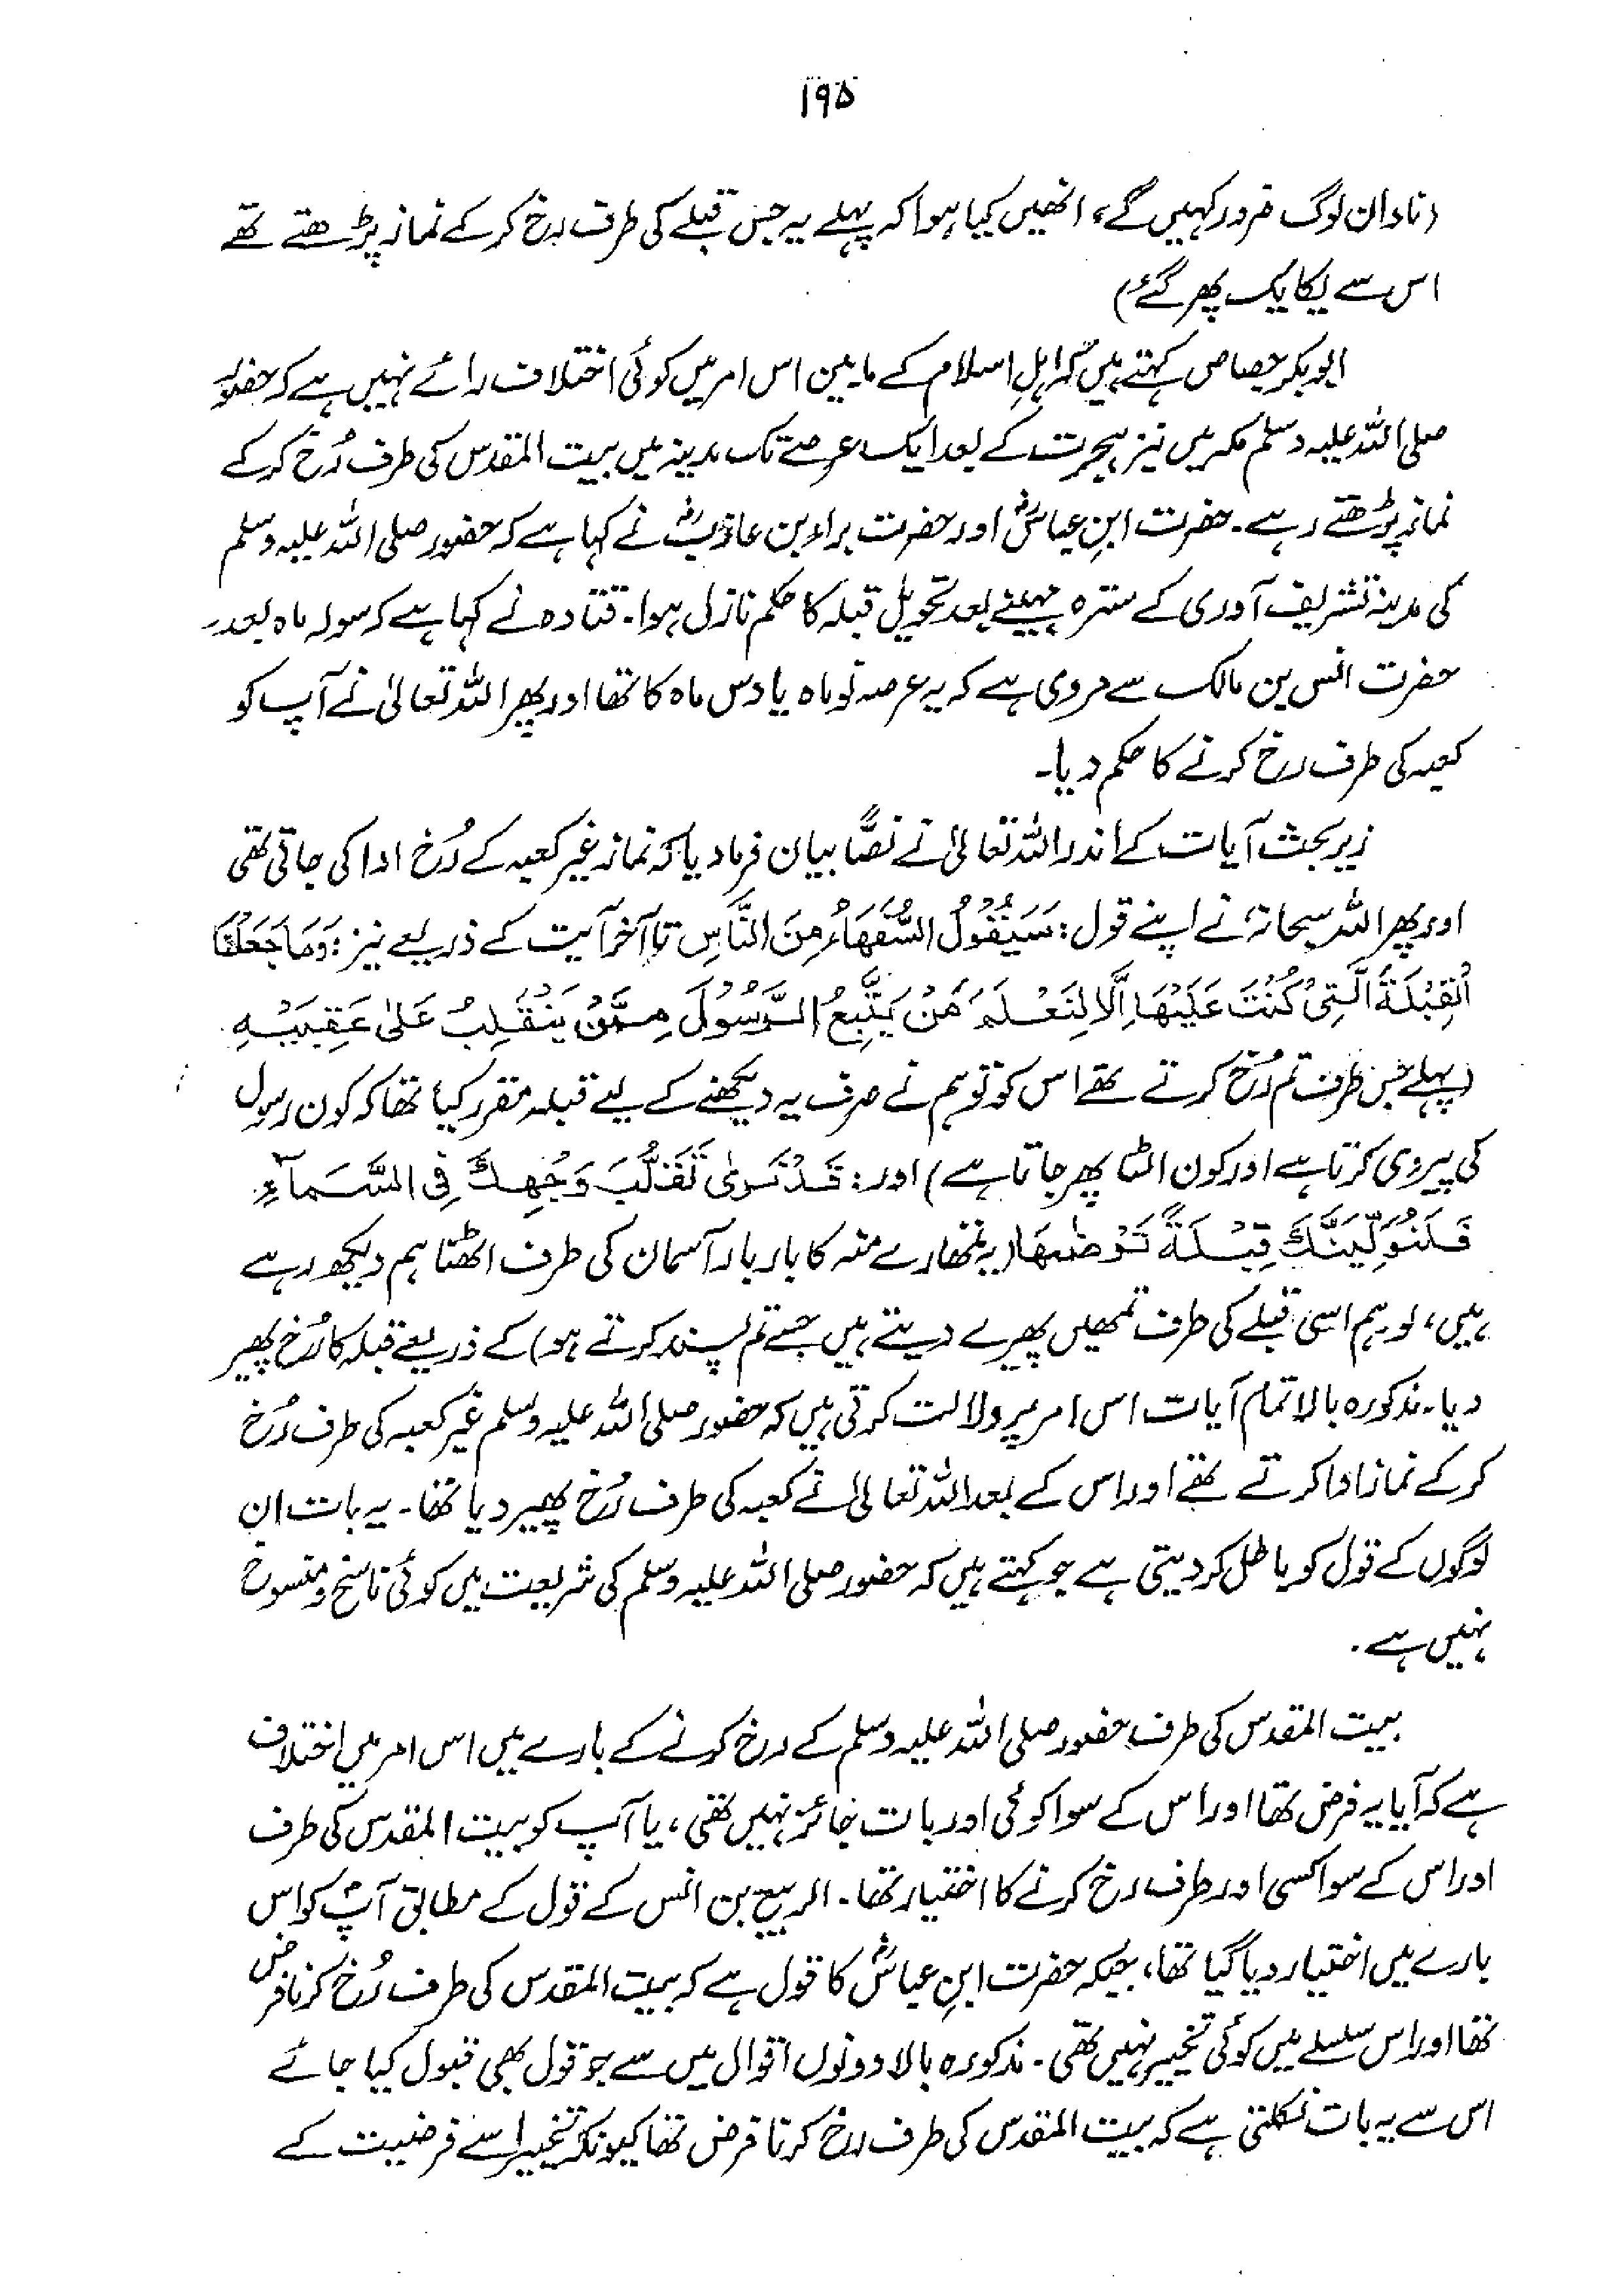 ۱۹۵
(نادان لوگ ضرور کہیں گے، انھیں کیا ہوا کہ پہلے یہ جس قبلے کی طرف رخ کر کے نماز پڑھتے تھے
اس سے یکایک پھر گئے)
ابوبکر جصاص کہتے ہیں کہ اہلِ اسلام کے مابین اس امر میں کوئی اختلاف رائے نہیں ہے کہ حضور
صلی اللہ علیہ وسلم مکہ میں نیز ہجرت کے بعد ایک عرصے تک مدینہ میں بیت المقدس کی طرف رُخ کر کے
نماز پڑھتے رہے۔ حضرت ابنِ عباسؓ اور حضرت براء بن عازبؓ نے کہا ہے کہ حضور صلی اللہ علیہ وسلم
کی مدینہ تشریف آوری کے سترہ مہینے بعد تحویل قبلہ کا حکم نازل ہوا۔ قتادہ نے کہا ہے کہ سولہ ماہ بعد۔
حضرت انس بن مالک سے مروی ہے کہ یہ عرصہ نو ماہ یا دس ماہ کا تھا اور پھر اللہ تعالیٰ نے آپ کو
کعبہ کی طرف رخ کرنے کا حکم دیا۔
زیر بحث آیات کے اندر اللہ تعالیٰ نے نصًّا بیان فرما دیا کہ نماز غیر کعبہ کے رُخ ادا کی جاتی تھی
اور پھر اللہ سبحانہٗ نے اپنے قول: سَيَقُوْلُ السُّفَهَاءُ مِنَ النَّاسِ تا آخر آیت کے ذریعے نیز: وَمَا جَعَلْنَا
الْقِبْلَةَ الَّتِیْ كُنْتَ عَلَيْهَا اِلَّا لِنَعْلَمَ مَنْ يَتَّبِعُ الرَّسُوْلَ مِمَّنْ يَنْقَلِبُ عَلٰى عَقِبَيْهِ
(پہلے جس طرف تم رُخ کرتے تھے اس کو تو ہم نے صرف یہ دیکھنے کے لیے قبلہ مقرر کیا تھا کہ کون رسول
کی پیروی کرتا ہے اور کون الٹا پھر جاتا ہے) اور: قَدْ نَرٰى تَقَلُّبَ وَجْهِكَ فِی السَّمَآءِ
فَلَنُوَلِّيَنَّكَ قِبْلَةً تَرْضٰىهَا (یہ تمھارے منہ کا بار بار آسمان کی طرف اٹھنا ہم دیکھ رہے
ہیں، لو ہم اسی قبلے کی طرف تمھیں پھیرے دیتے ہیں جسے تم پسند کرتے ہو) کے ذریعے قبلہ کا رُخ پھیر
دیا۔ مذکورہ بالا تمام آیات اس امر پر دلالت کرتی ہیں کہ حضور صلی اللہ علیہ وسلم غیر کعبہ کی طرف رُخ
کر کے نماز ادا کرتے تھے اور اس کے بعد اللہ تعالیٰ نے کعبہ کی طرف رُخ پھیر دیا تھا۔ یہ بات ان
لوگوں کے قول کو باطل کر دیتی ہے جو کہتے ہیں کہ حضور صلی اللہ علیہ وسلم کی شریعت میں کوئی ناسخ و منسوخ
نہیں ہے۔
بیت المقدس کی طرف حضور صلی اللہ علیہ وسلم کے رخ کرنے کے بارے میں اس امر میں اختلاف
ہے کہ آیا یہ فرض تھا اور اس کے سوا کوئی اور بات جائز نہیں تھی، یا آپ کو بیت المقدس کی طرف
اور اس کے سوا کسی اور طرف رخ کرنے کا اختیار تھا۔ الربیع بن انس کے قول کے مطابق آپؐ کو اس
بارے میں اختیار دیا گیا تھا، جبکہ حضرت ابنِ عباسؓ کا قول ہے کہ بیت المقدس کی طرف رُخ کرنا فرض
تھا اور اس سلسلے میں کوئی تخییر نہیں تھی۔ مذکورہ بالا دونوں اقوال میں سے جو قول بھی قبول کیا جائے
اس سے یہ بات نکلتی ہے کہ بیت المقدس کی طرف رخ کرنا فرض تھا کیونکہ تخییر اسے فرضیت کے